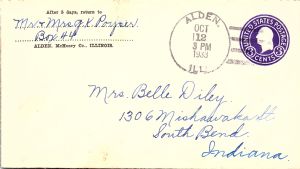 After 5 days, return to
Mr. & Mrs. G. K. Poyner
Box #4
ALDEN, McHenry Co., ILLINOIS
ALDEN.
OCT
12
3 PM
1933
ILL.
UNITED STATES POSTAGE
3 CENTS 3
Mrs. Belle Diley
1306 Mishawaka St.
South Bend.
Indiana.